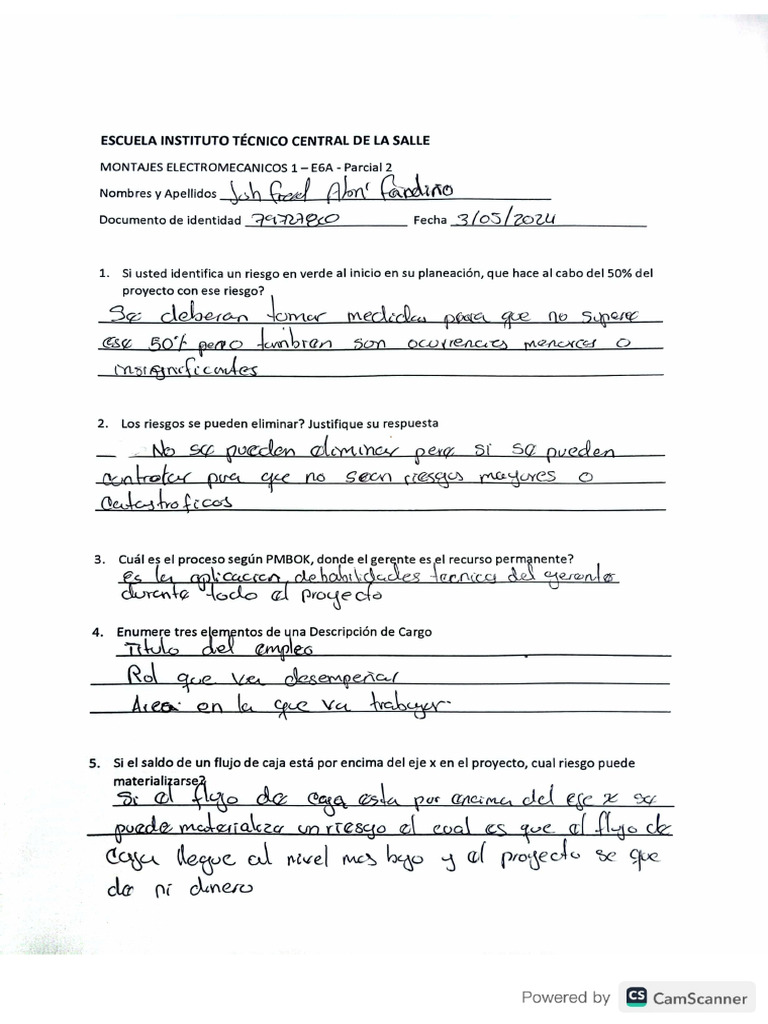 ESCUELA INSTITUTO TÉCNICO CENTRAL DE LA SALLE
MONTAJES ELECTROMECANICOS 1 – E6A - Parcial 2
Nombres y Apellidos
Documento de identidad Fecha 3/05/2024
1. Si usted identifica un riesgo en verde al inicio en su planeación, que hace al cabo del 50% del
proyecto con ese riesgo?
Se deberan tomar medidas para que no supere
ese 50% pero tambien son ocurrencias menores o
insignificantes
2. Los riesgos se pueden eliminar? Justifique su respuesta
No se pueden eliminar pero si se pueden
controlar para que no sean riesgos mayores o
catastroficos
3. Cuál es el proceso según PMBOK, donde el gerente es el recurso permanente?
es la aplicacion de habilidades tecnica del gerente
durante todo el proyecto
4. Enumere tres elementos de una Descripción de Cargo
Titulo del empleo
Rol que va desempeñar
Area en la que va trabajar
5. Si el saldo de un flujo de caja está por encima del eje x en el proyecto, cual riesgo puede
materializarse?
Si el flujo de caja esta por encima del eje x se
puede materializa un riesgo el cual es que el flujo de
caja llegue al nivel mas bajo y el proyecto se que
de ni dinero
Powered by CS CamScanner